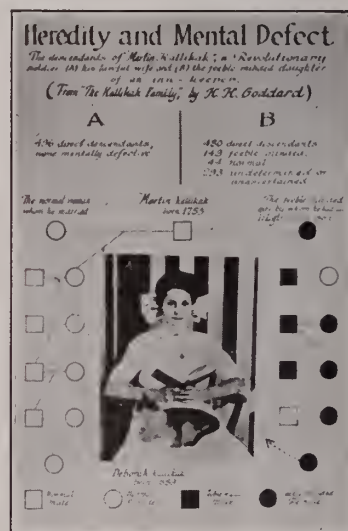 Heredity and Mental Defect.
The descendants of "Martin Kallikak", a Revolutionary
soldier (A) his lawful wife and (B) the feeble minded daughter
of an inn-keeper.
(From "The Kallikak Family," by H. H. Goddard)
A
B
496 direct descendants,
none mentally defective
480 direct descendants
143 feeble minded.
44 normal
293 undetermined or
unascertained
The normal woman
whom he married
"Martin Kallikak
born 1753
The feeble minded
girl by whom he had
Deborah Kallikak
born
Normal
Male